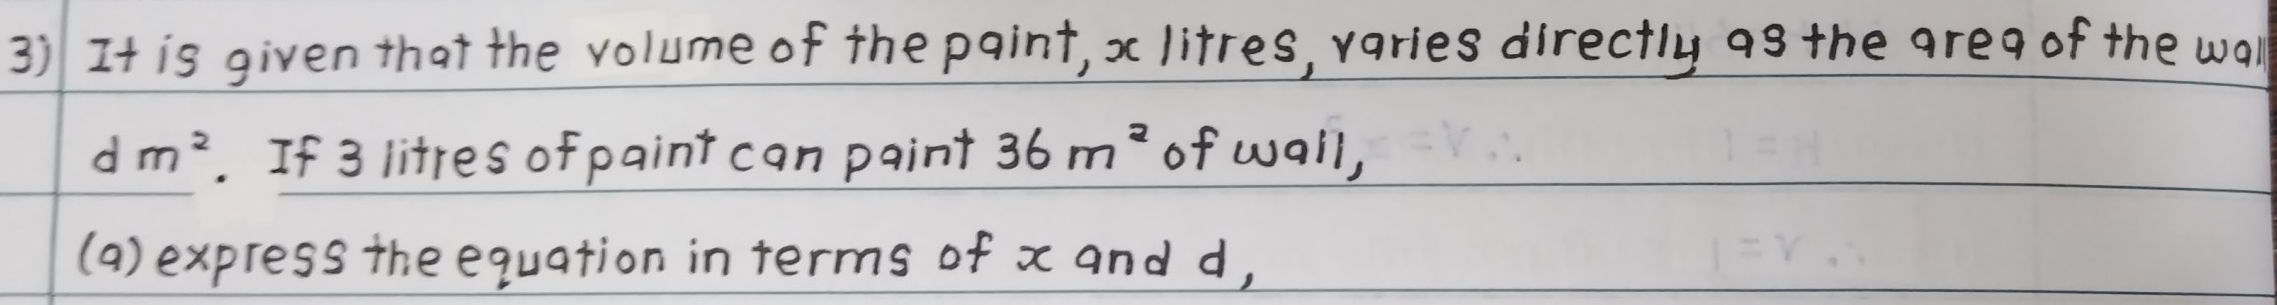 3) It is given that the volume of the paint, x litres, varies directly as the area of the wall
d m². If 3 litres of paint can paint 36 m² of wall,
(a) express the equation in terms of x and d,